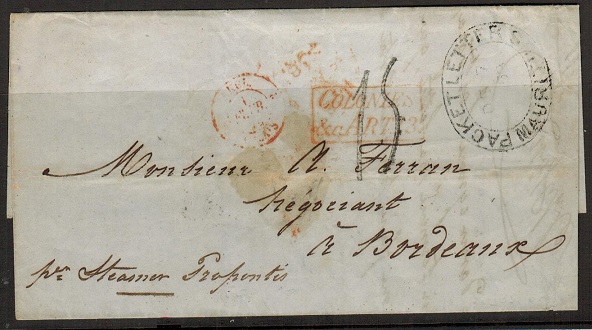 PACKET LETTER MAURITIUS
COLONIES
&c. ART. 13
15
Monsieur A. Ferran
Négociant
à Bordeaux
pr Steamer Propontis